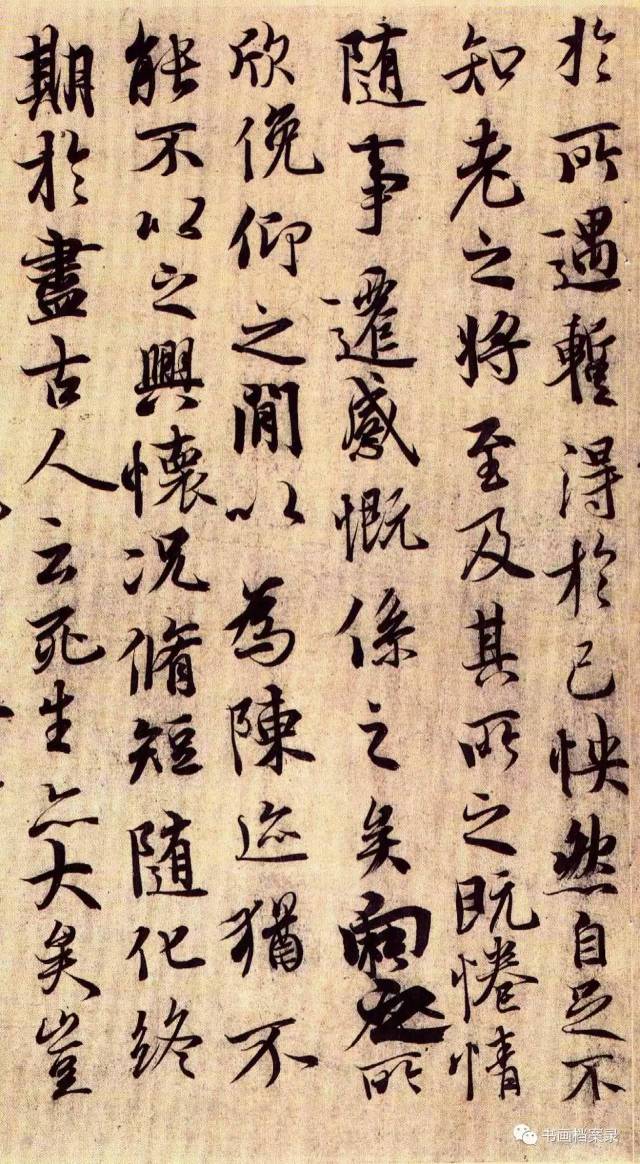 於所遇蹔得於己怏然自足不
知老之將至及其所之既惓情
随事遷感慨係之矣向之所
欣俛仰之間以為陳迹猶不
能不以之興懷況脩短随化終
期於盡古人云死生亦大矣豈
书画档案录